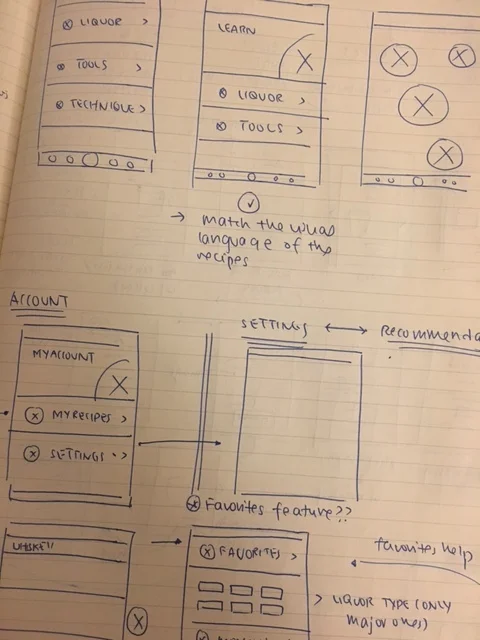 LIQUOR >
TOOLS >
TECHNIQUE >
LEARN
LIQUOR >
TOOLS >
→ match the visual
language of the
recipes
ACCOUNT
MY ACCOUNT
MY RECIPES >
SETTINGS >
SETTINGS ↔ Recommenda
Favorites feature??
FAVORITES >
favorites help
> LIQUOR TYPE (ONLY
major ones)